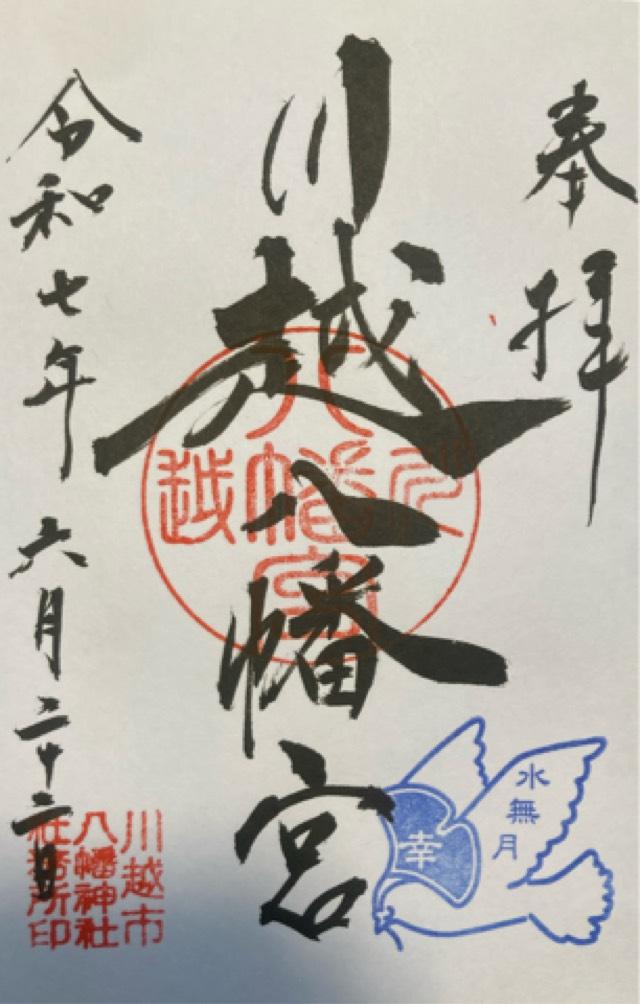 奉拝
川越八幡宮
川越八幡宮
令和七年 六月二十二日
水無月
幸
川越市
八幡神社
社務所印